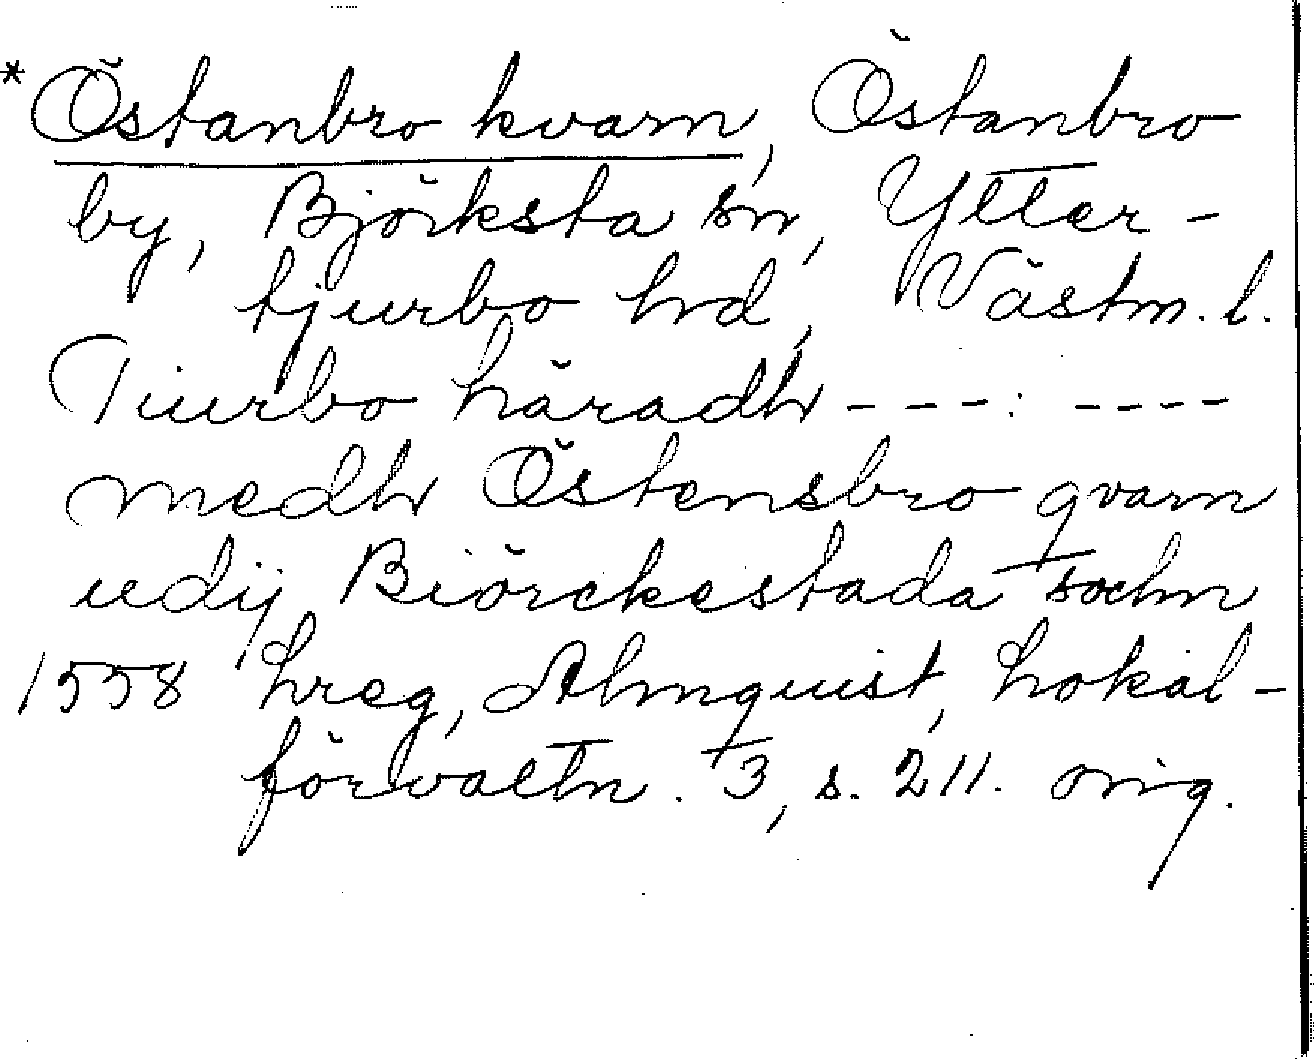 *Östanbro kvarn, Östanbro
by, Björksta sn, Ytter-
tjurbo hd, Västm. l.
Tiurbo häradh - - - -: - - - -
medh Östensbro qvarn
udij Biörckestada sochn
1558 hreg, Almquist, Lokal-
förvaltn. 3, s. 211. orig.